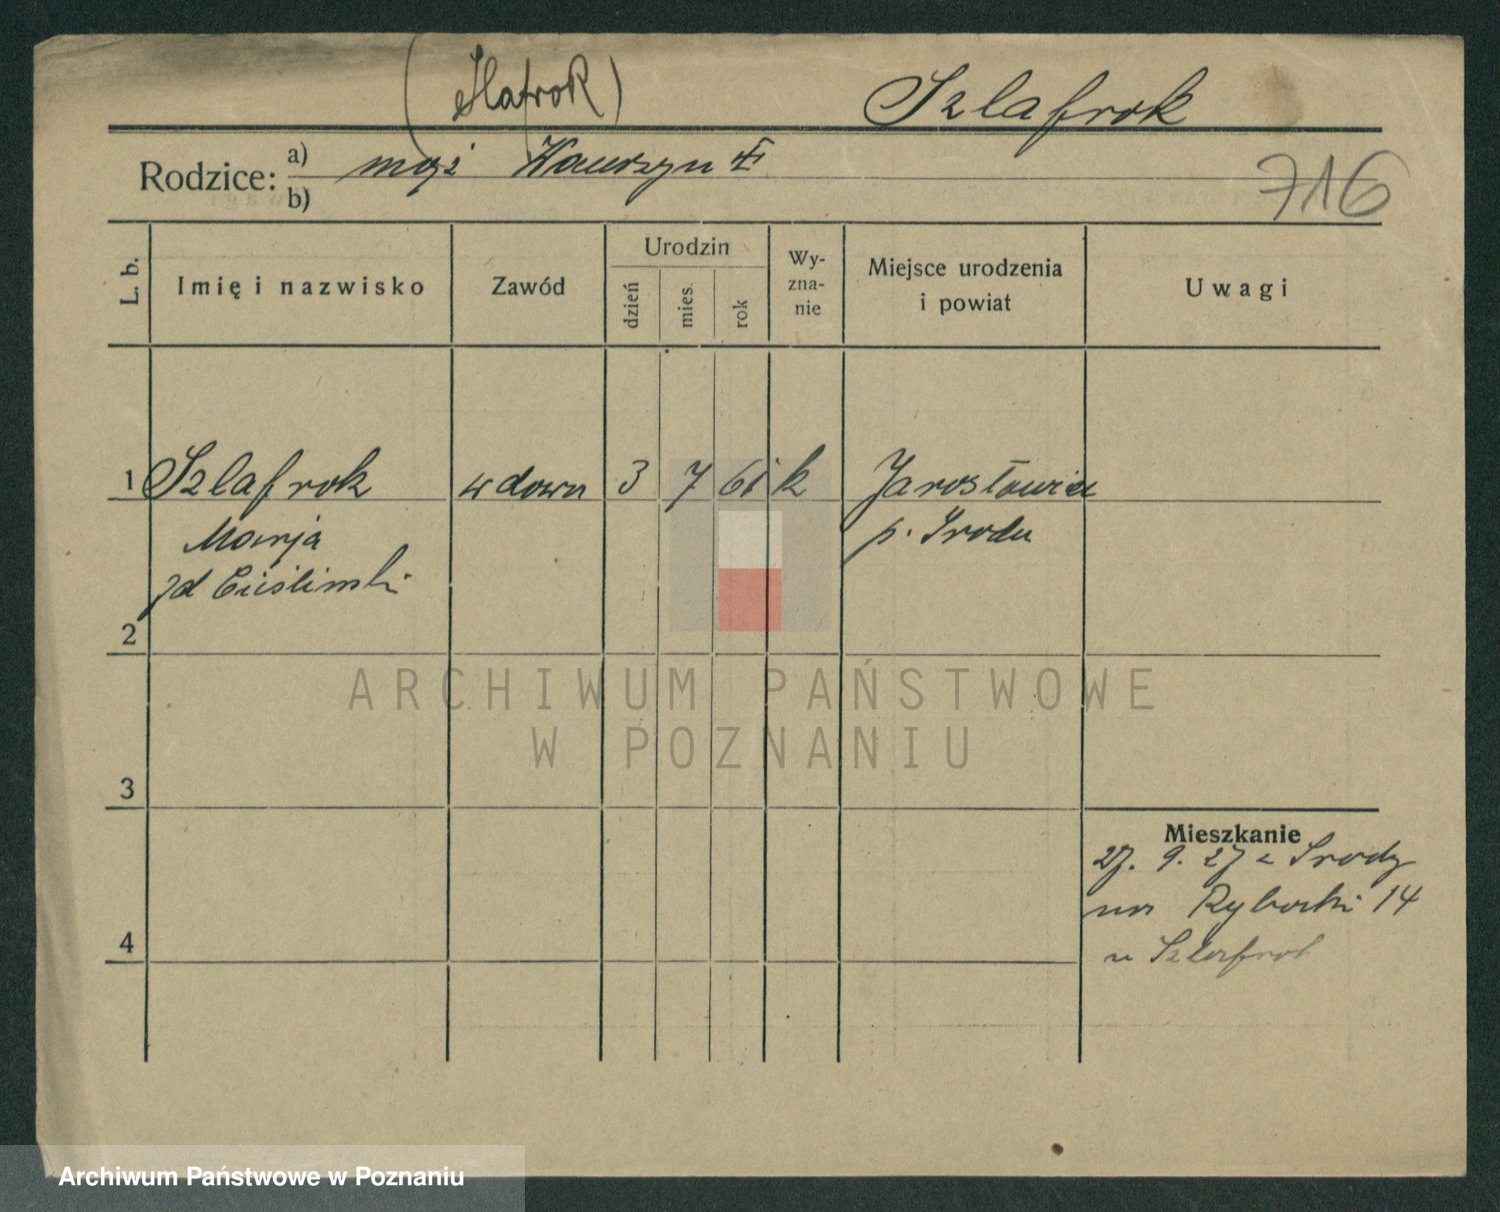 (Slafrok)
Szlafrok
Rodzice: a) mąż Wawrzyn
b)
716
L. b.
Imię i nazwisko
Zawód
Urodzin
dzień
mies.
rok
Wy-
zna-
nie
Miejsce urodzenia
i powiat
Uwagi
1 Szlafrok wdowa 3 7 61 k Jarosławiec
Marja p. Środa
zd Cieślinski
2
3
4
Mieszkanie
27. 9. 27 z Środy
na Rybaki 14
u Szlafrok
ARCHIWUM PAŃSTWOWE
W POZNANIU
Archiwum Państwowe w Poznaniu